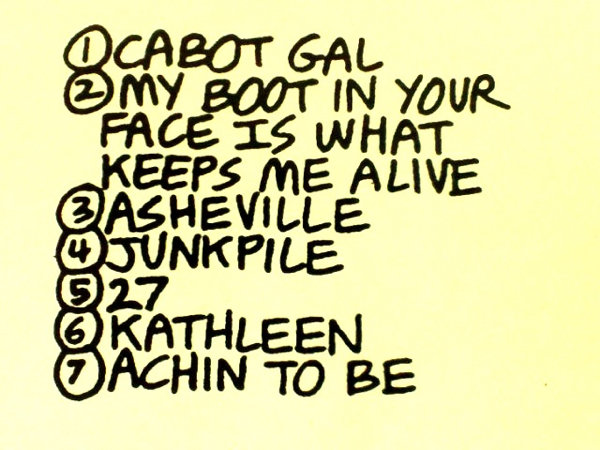 1 CABOT GAL
2 MY BOOT IN YOUR
FACE IS WHAT
KEEPS ME ALIVE
3 ASHEVILLE
4 JUNKPILE
5 27
6 KATHLEEN
7 ACHIN TO BE